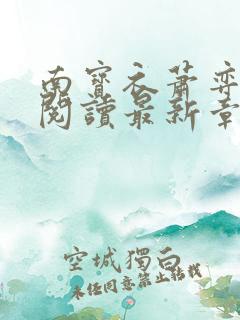 南寶衣蕭弈
閱讀最新章
空城獨白
未經同意禁止轉載